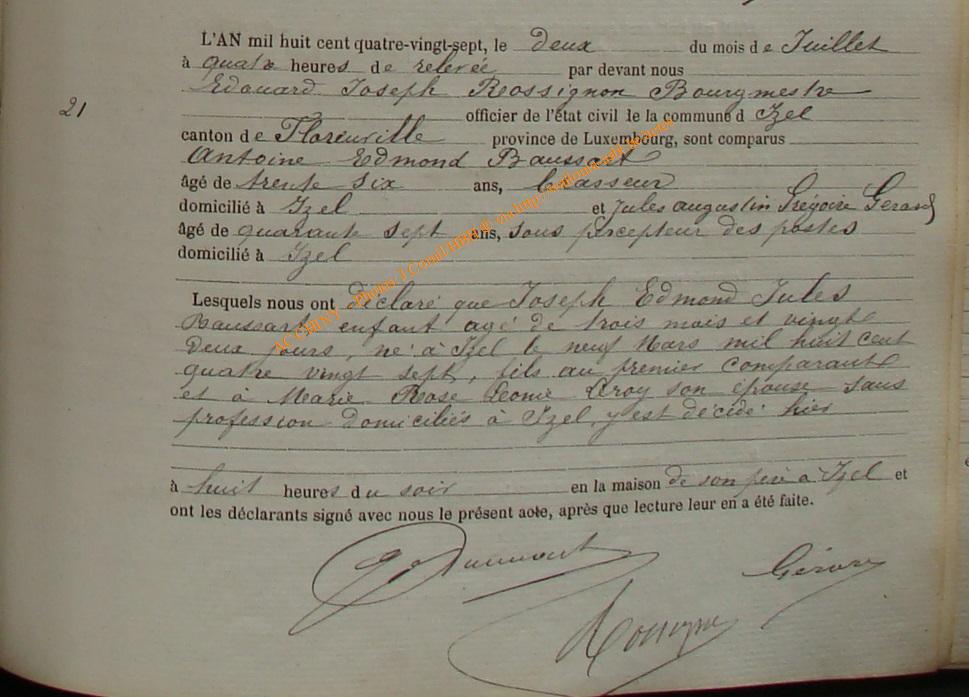 L'AN mil huit cent quatre-vingt-sept, le deux du mois de Juillet
à quatre heures de relevée par devant nous
Edouard Joseph Rossignon Bourgmestre
21
officier de l'état civil de la commune d Izel
canton de Florenville province de Luxembourg, sont comparus
Antoine Edmond Baussart
âgé de trente six ans, brasseur
domicilié à Izel et Jules augustin Grégoire Gerard
âgé de quarante sept ans, sous percepteur des postes
domicilié à Izel
Lesquels nous ont déclaré que Joseph Edmond Jules
Baussart enfant agé de trois mois et vingt
deux jours, né à Izel le neuf Mars mil huit cent
quatre vingt sept, fils au premier comparant
et à Marie Rose Leonie Leroy son épouse sans
profession domiciliés à Izel, y est décédé hier
à huit heures du soir en la maison de son père à Izel et
ont les déclarants signé avec nous le présent acte, après que lecture leur en a été faite.
Gérard